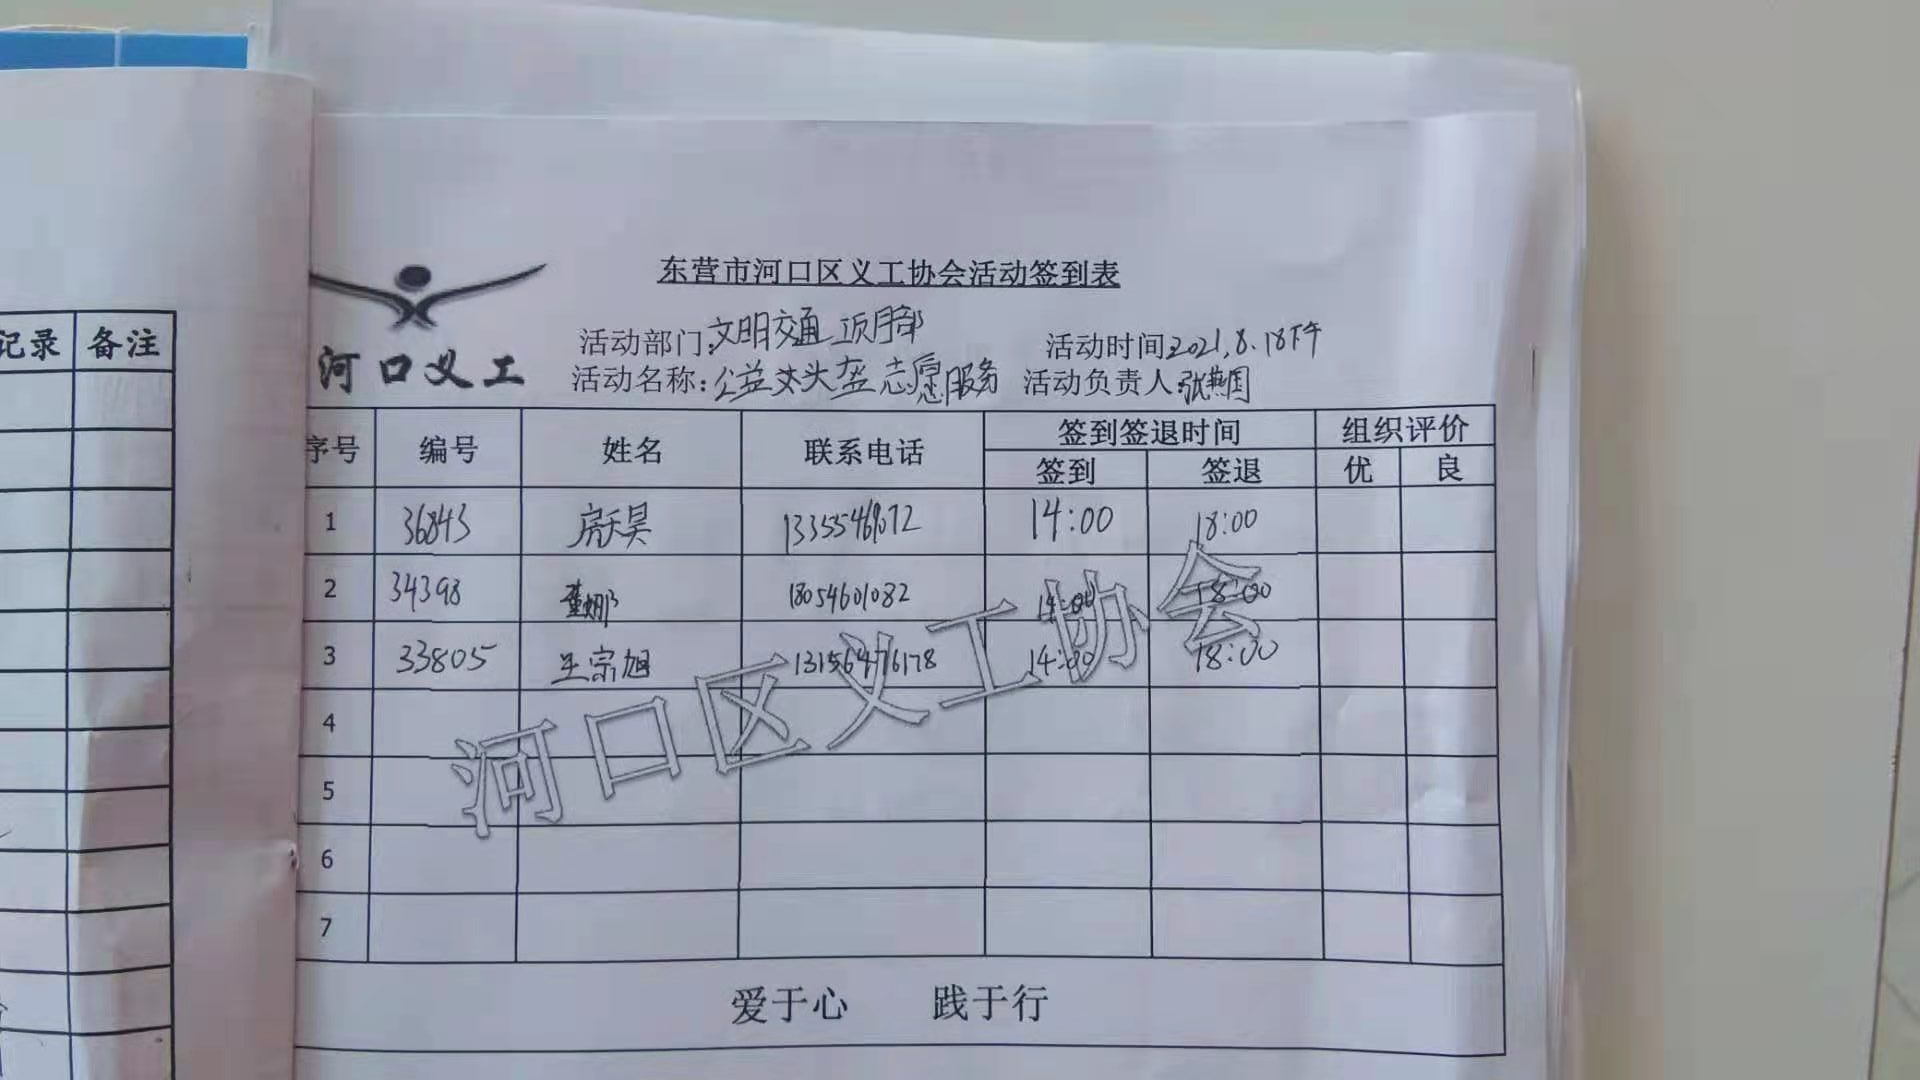 东营市河口区义工协会活动签到表
河口义工
活动部门:文明交通项目部 活动时间2021.8.18下午
活动名称:公益头盔志愿服务 活动负责人:张燕国
记录 备注
序号 编号 姓名 联系电话 签到签退时间 组织评价
签到 签退 优 良
1 36843 房天昊 13355469072 14:00 18:00
2 34398 董娜 18054601082 14:00 18:00
3 33805 王宗旭 13156476178 14:00 18:00
4
5
6
7
河口区义工协会
爱于心 践于行